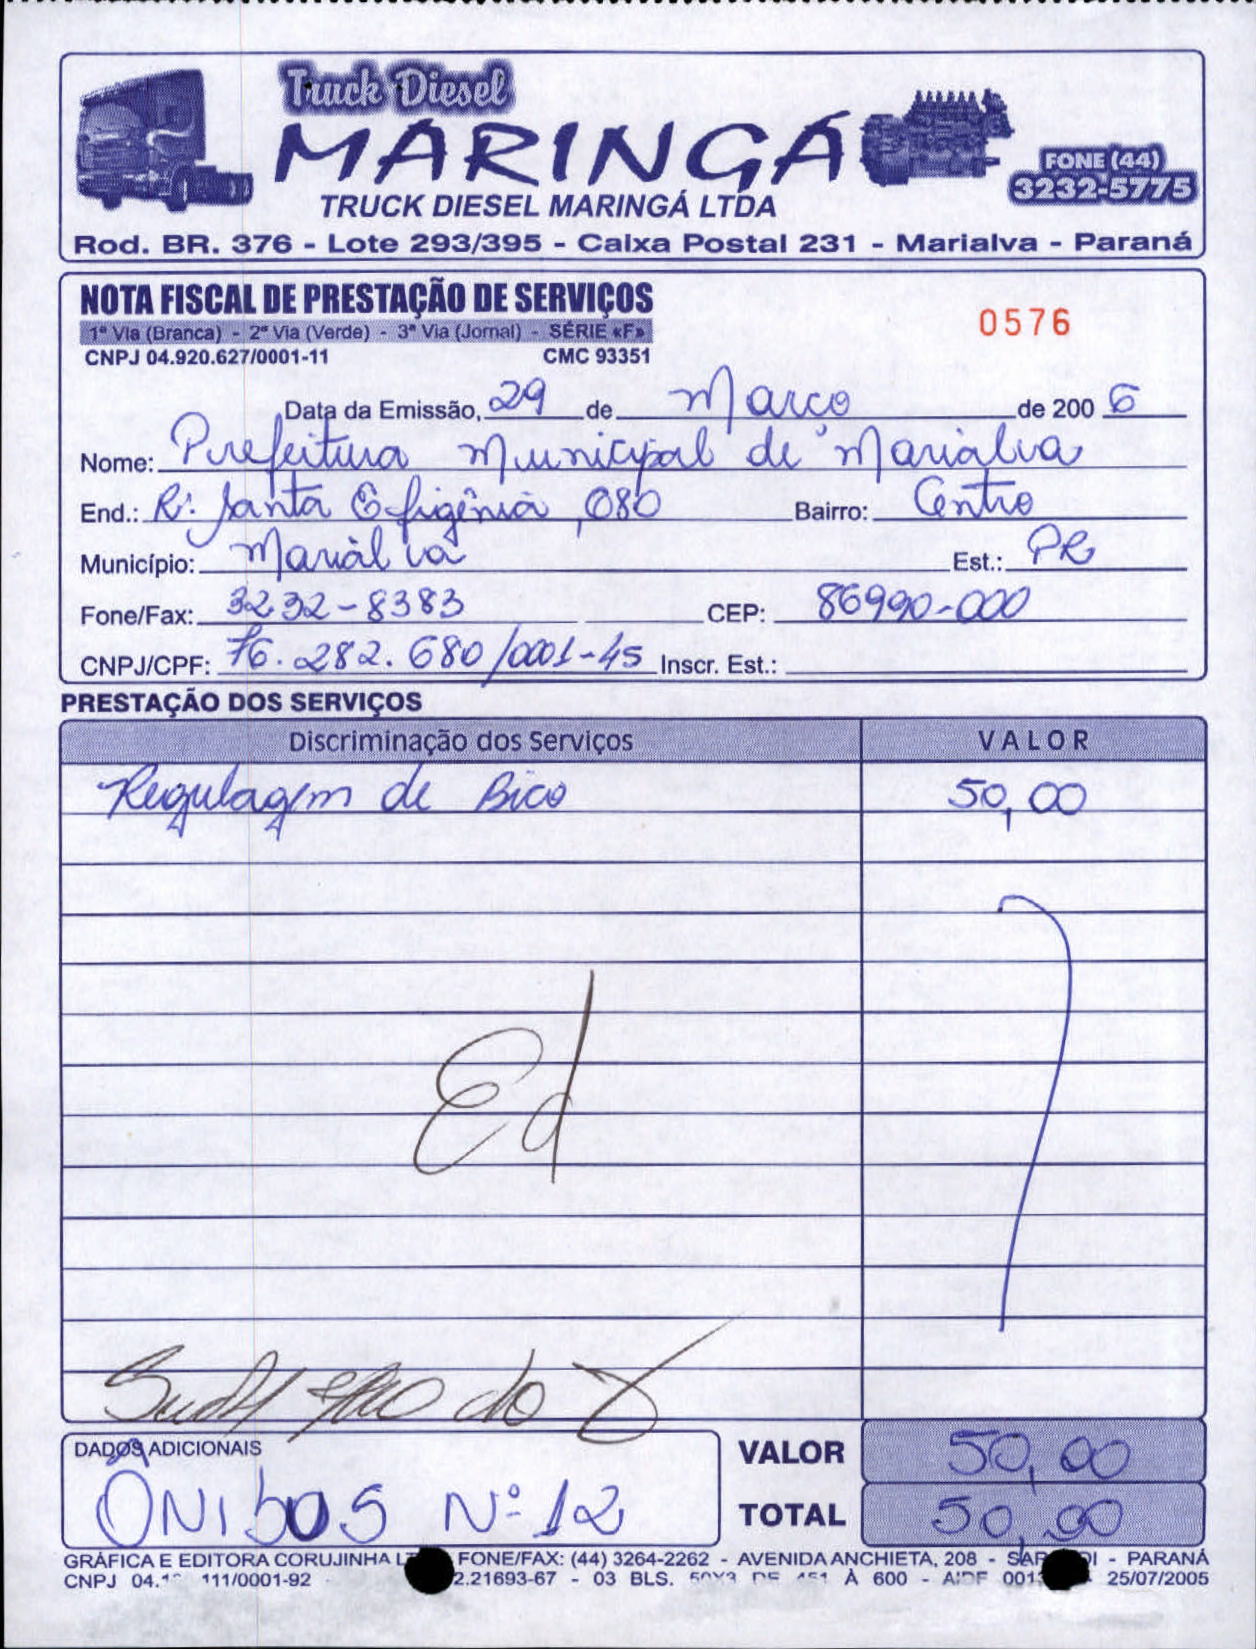 Truck Diesel
MARINGÁ
FONE (44)
3232-5775
TRUCK DIESEL MARINGÁ LTDA
Rod. BR. 376 - Lote 293/395 - Caixa Postal 231 - Marialva - Paraná
NOTA FISCAL DE PRESTAÇÃO DE SERVIÇOS
0576
1ª Via (Branca) - 2ª Via (Verde) - 3ª Via (Jornal) - SÉRIE «F»
CNPJ 04.920.627/0001-11 CMC 93351
Data da Emissão, 29 de Março de 2006
Nome: Prefeitura Municipal de Marialva
End.: R: Santa Efigênia, 080 Bairro: Centro
Município: Marialva Est.: PR
Fone/Fax: 3232-8383 CEP: 86990-000
CNPJ/CPF: 76.282.680/0001-45 Inscr. Est.:
PRESTAÇÃO DOS SERVIÇOS
Discriminação dos Serviços VALOR
Regulagem de Bico 50,00
Ed
do
DADOS ADICIONAIS
ONIbUS Nº 12
VALOR 50,00
TOTAL 50,00
GRÁFICA E EDITORA CORUJINHA FONE/FAX: (44) 3264-2262 - AVENIDA ANCHIETA, 208 - - PARANÁ
CNPJ 04.1 111/0001-92 - 2.21693-67 - 03 BLS. 50X3 DE 451 À 600 - AIDF 001 25/07/2005